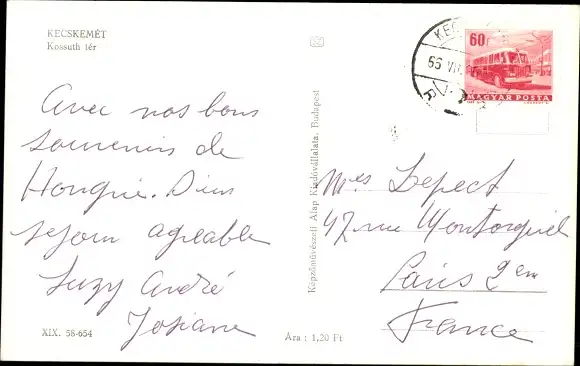 KECSKEMÉT
Kossuth tér
Avec nos bons
souvenirs de
Hongrie. Dieus
sejour agreable
Suzy André
Josiane
XIX. 58-654
Ára : 1,20 Ft
Képzőművészeti Alap Kiadóvállalata, Budapest
60f
MAGYAR POSTA
KEC
Mres Depect
47 rue Montorgueil
Paris 2em
France